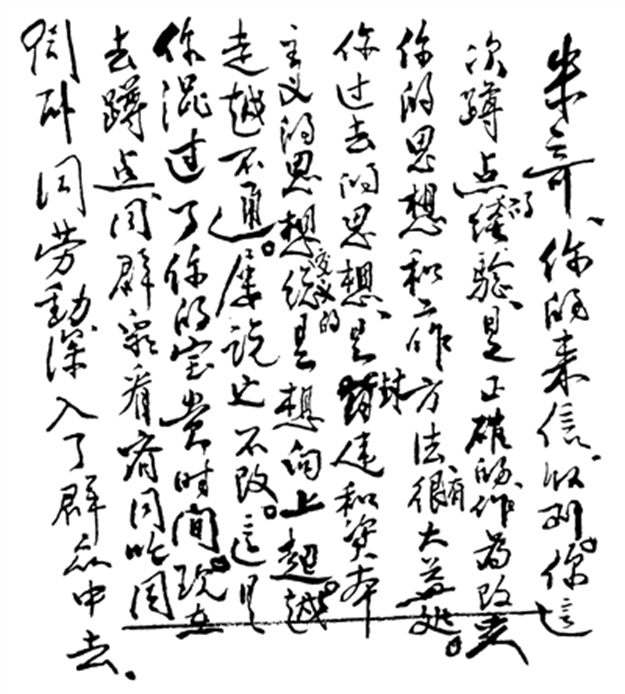 朱奇、你的来信收到。你这
次蹲点的经验、是正确的、作为改变
你的思想和工作方法、很有大益处。
你过去的思想、是封建和资本
主义的思想总是想向上超。越
走越不通。屡说也不改。这是
你混过了你的宝贵时间。现在
去蹲点同群众看齐同吃同
卧同劳動深入了群众中去.